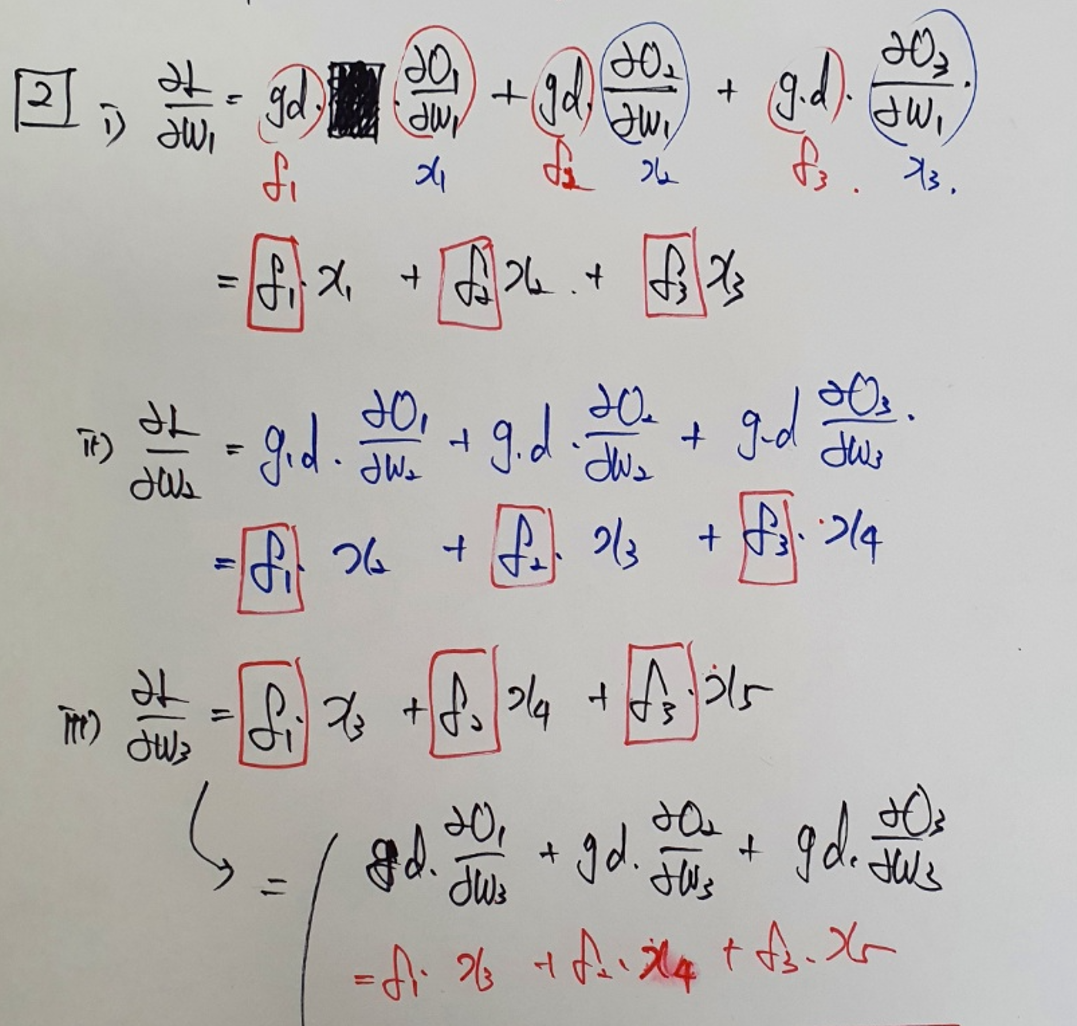 2 i) ∂L/∂w₁ = gd. ∂O₁/∂w₁ + gd. ∂O₂/∂w₁ + g.d. ∂O₃/∂w₁.
f₁ x₁ f₂ x₂ f₃. x₃.
= f₁. x₁ + f₂ x₂. + f₃ x₃
ii) ∂L/∂w₂ = g.d. ∂O₁/∂w₂ + g.d. ∂O₂/∂w₂ + g.d ∂O₃/∂w₃.
= f₁. x₂ + f₂. x₃ + f₃. x₄
iii) ∂L/∂w₃ = f₁. x₃ + f₂ x₄ + f₃. x₅
= gd. ∂O₁/∂w₃ + gd. ∂O₂/∂w₃ + gd. ∂O₃/∂w₃
= f₁. x₃ + f₂. x₄ + f₃. x₅